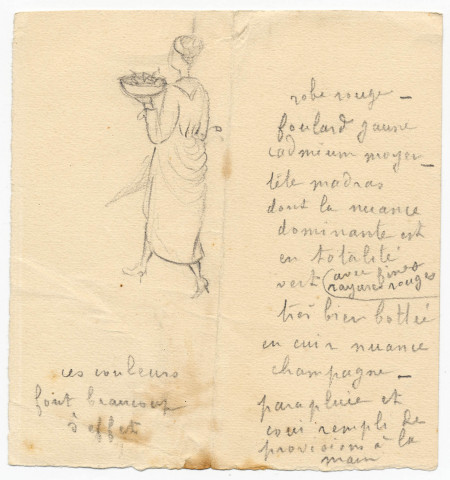 robe rouge —
foulard jaune
cadmium moyen —
tête madras
dont la nuance
dominante est
en totalité
vert (avec fines
rayures rouges
très bien bottée
en cuir nuance
champagne —
parapluie et
coui rempli de
provisions à la
main
ces couleurs
font beaucoup
d'effets